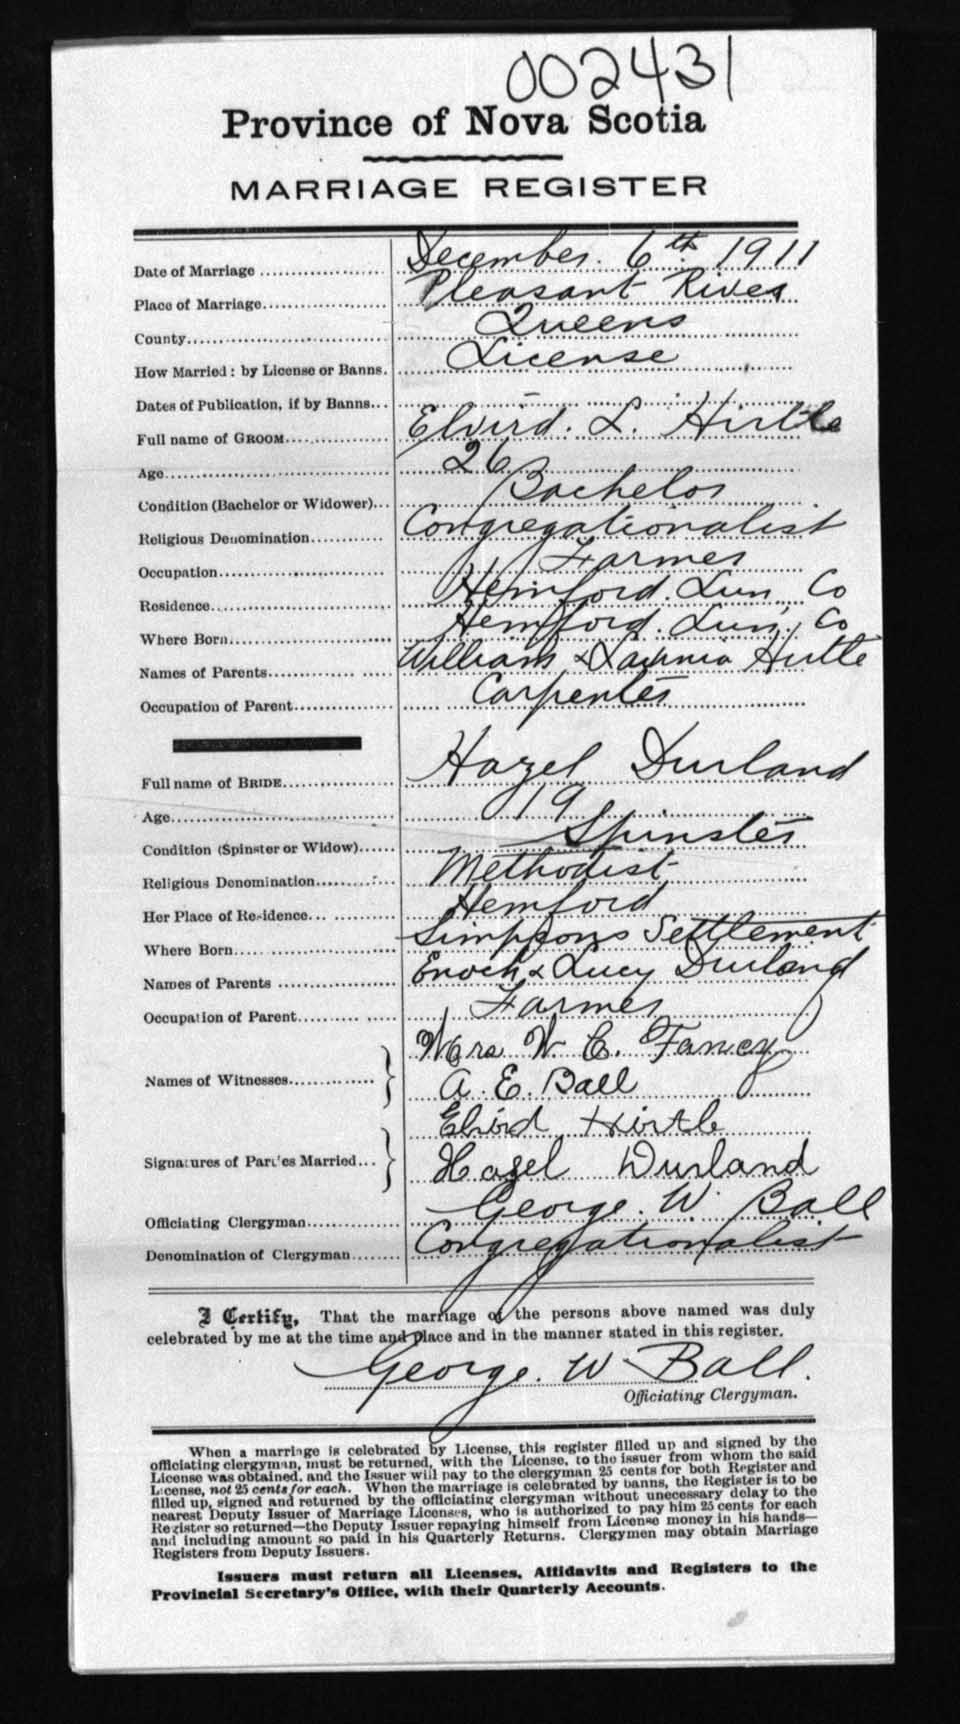 002431
Province of Nova Scotia
MARRIAGE REGISTER
Date of Marriage December. 6th 1911
Place of Marriage Pleasant River
County Queens
How Married: by License or Banns. License
Dates of Publication, if by Banns... —
Full name of GROOM Elvird. L. Hirtle
Age 26
Condition (Bachelor or Widower)... Bachelor
Religious Denomination Congregationalist
Occupation Farmer
Residence Hemford. Lun, Co
Where Born Hemford. Lun, Co
Names of Parents William & Lavinia Hirtle
Occupation of Parent Carpenter
Full name of BRIDE Hazel Durland
Age 19
Condition (Spinster or Widow) Spinster
Religious Denomination Methodist
Her Place of Residence Hemford
Where Born Simpsons Settlement
Names of Parents Enoch & Lucy Durland
Occupation of Parent Farmer
Names of Witnesses Mrs W. E. Fancy
A. E. Ball
Signatures of Parties Married Elvird Hirtle
Hazel Durland
Officiating Clergyman George. W. Ball
Denomination of Clergyman Congregationalist
I Certify, That the marriage of the persons above named was duly
celebrated by me at the time and place and in the manner stated in this register.
George. W Ball.
Officiating Clergyman.
When a marriage is celebrated by License, this register filled up and signed by the
officiating clergyman, must be returned, with the License, to the issuer from whom the said
License was obtained, and the Issuer will pay to the clergyman 25 cents for both Register and
License, not 25 cents for each. When the marriage is celebrated by banns, the Register is to be
filled up, signed and returned by the officiating clergyman without unnecessary delay to the
nearest Deputy Issuer of Marriage Licenses, who is authorized to pay him 25 cents for each
Register so returned—the Deputy Issuer repaying himself from License money in his hands—
and including amount so paid in his Quarterly Returns. Clergymen may obtain Marriage
Registers from Deputy Issuers.
Issuers must return all Licenses, Affidavits and Registers to the
Provincial Secretary's Office, with their Quarterly Accounts.